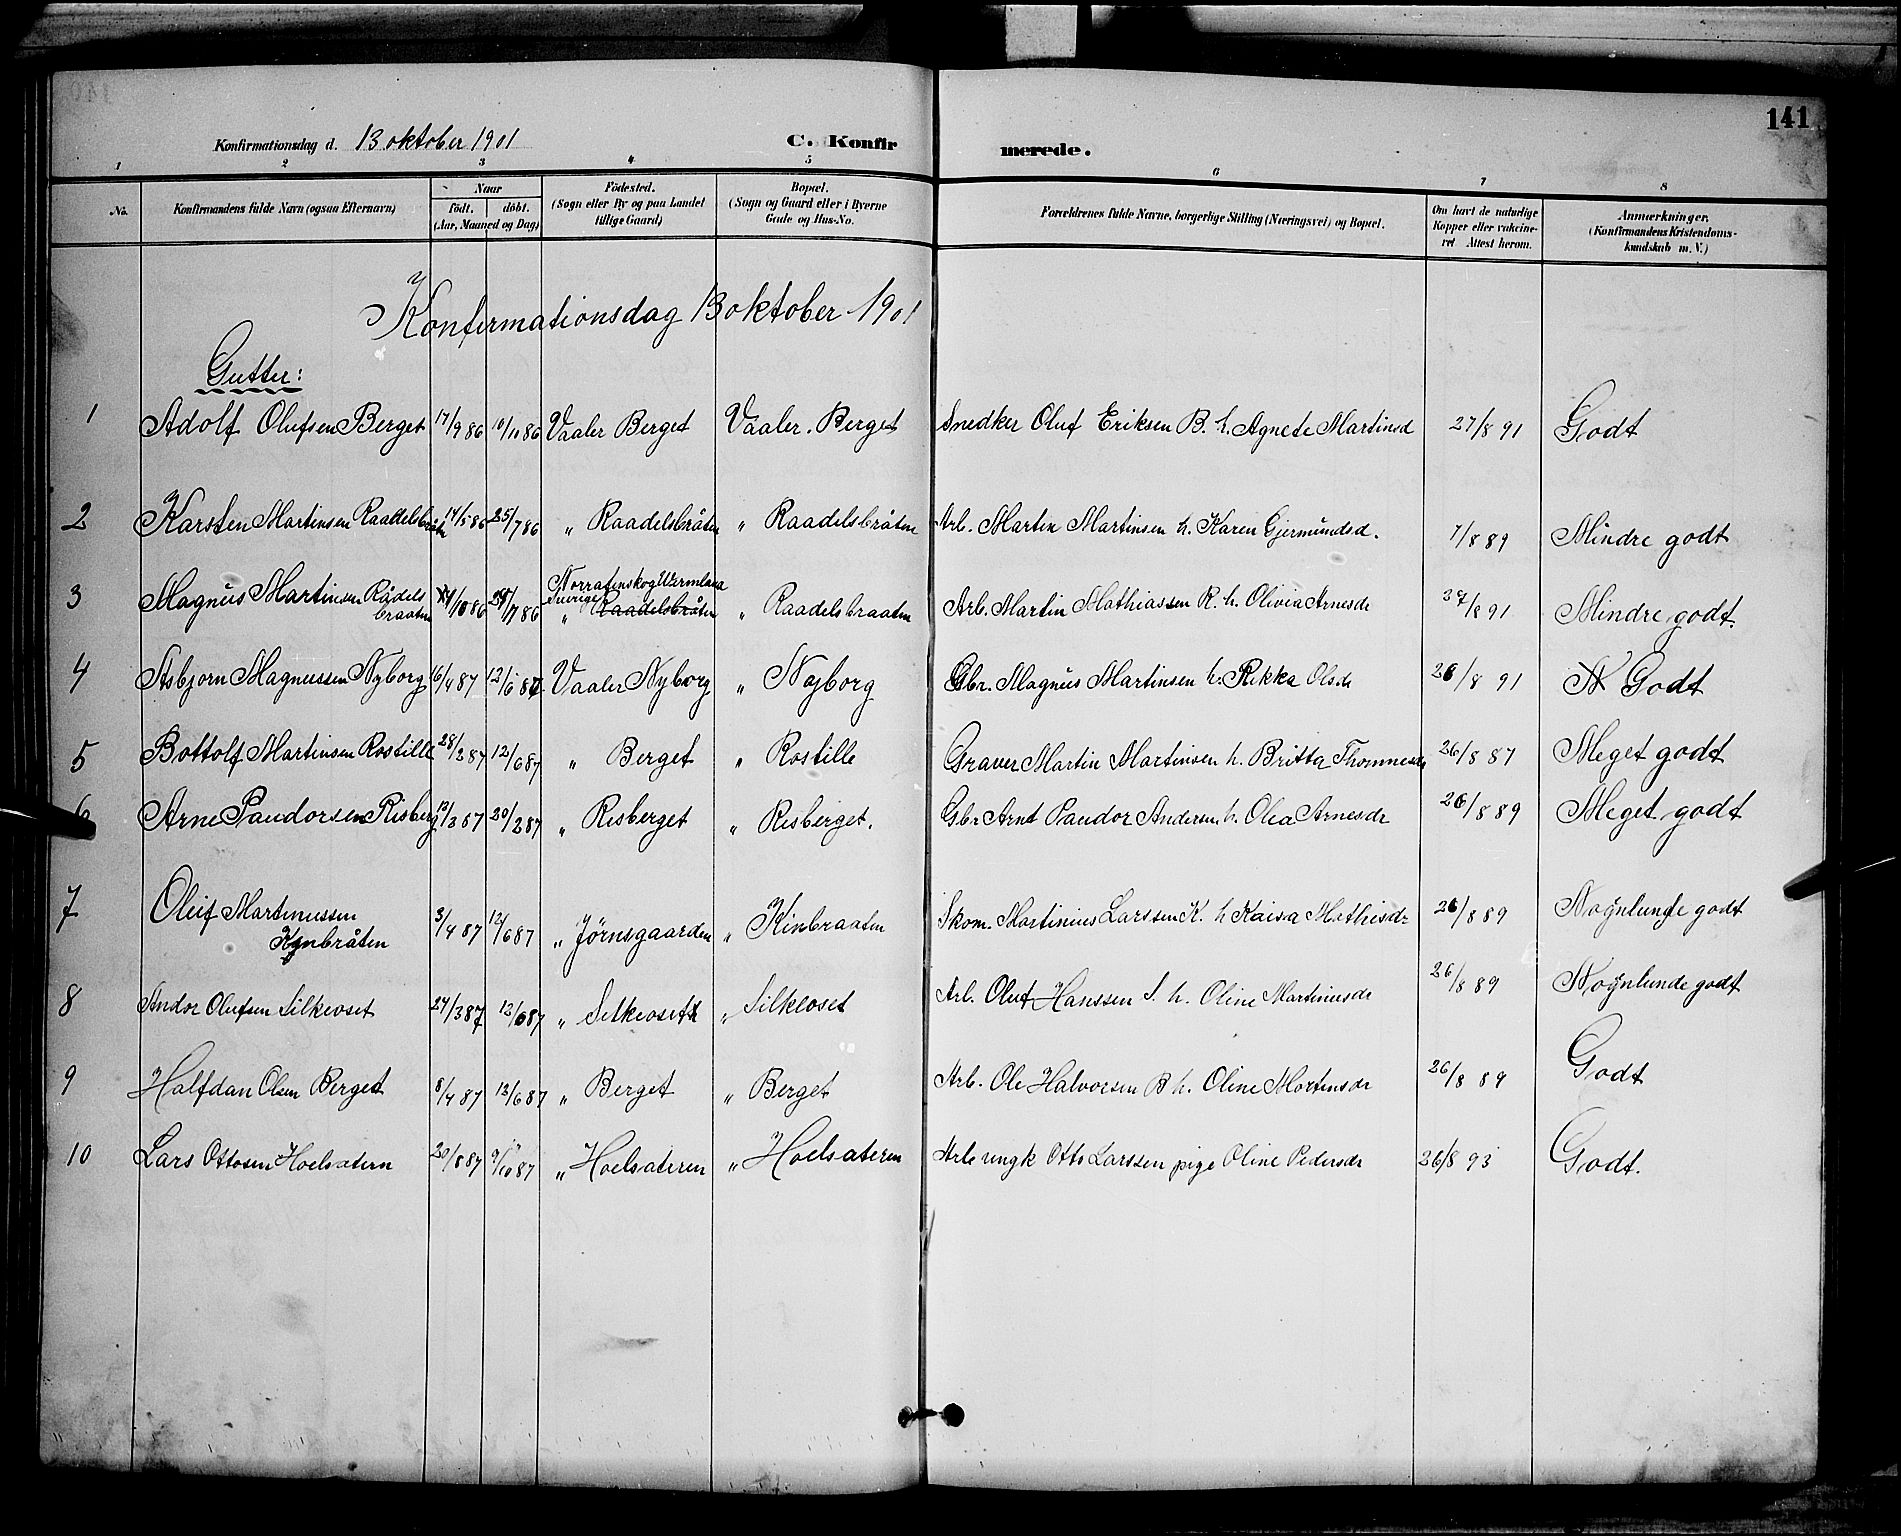 141
Konfirmationsdag d. 13 oktober 1901
C. Konfir merede.
1 2 3 4 5 6 7 8
No.
Konfirmandens fulde Navn (ogsaa Efternavn)
Naar
födt. döbt.
(Aar, Maaned og Dag)
Födested.
(Sogn eller By og paa Landet
tillige Gaard)
Bopæl.
(Sogn og Gaard eller i Byerne
Gade og Hus-No.
Forældrenes fulde Navne, borgerlige Stilling (Næringsvei) og Bopæl.
Om havt de naturlige
Kopper eller vakcine-
ret Attest herom.
Anmærkninger.
(Konfirmandens Kristendoms-
kundskab m. V.)
Konfirmationsdag 13 oktober 1901
Gutter:
1 Adolf Olufsen Berget 17/9 86 10/10 86 Vaaler Berget Vaaler. Berget Snedker Oluf Eriksen B. h. Agnete Martinsd 27/8 91 Godt
2 Karsten Martinsen Raadelsbråtn 14/5 86 25/7 86 " Raadelsbråten " Raadelsbråten Arb. Martin Martinsen h. Karen Gjermundsd. 7/8 89 Mindre godt
Norra Finskog Wermland
3 Magnus Martinsen Rådels 86 86 Sverige " Raadelsbråten " Raadelsbraaten Arb. Martin Mathiassen R. h. Olivia Arnesdr 27/8 91 Mindre godt.
braaten
4 Asbjørn Magnussen Nyborg 16/4 87 12/6 87 Vaaler Nyborg " Nyborg Gbr. Magnus Martinsen h. Rikka Olsdr 26/8 91 N Godt
5 Bottolf Martinsen Rostille 28/2 87 12/6 87 " Berget " Rostille Graver Martin Martinsen h. Britta Thomnesdr 26/8 87 Meget godt
6 Arne Pandorsen Risberg 20/2 87 " Risberget " Risberget. Gbr Arnt Pandor Andersen h. Olea Arnesdr 26/8 89 Meget godt
7 Oluf Martinussen 3/4 87 12/6 87 " Jørnsgaarden " Kinbraaten Skom. Martinius Larssen K. h Kaisa Mathisdr 26/8 89 Nogenlunde godt
Kynbråten
8 Andor Olufsen Silkeoset 24/3 87 12/6 87 " Silkeoset " Silkeoset Arb. Oluf Hanssen S. h. Oline Martinusdr 26/8 89 Nogenlunde godt
9 Halfdan Olsen Berget 8/4 87 12/6 87 " Berget " Berget Arb. Ole Halvorsen B h. Oline Martinsdr 26/8 89 Godt
10 Lars Ottosen Hoelsætern 20/8 87 9/10 87 " Hoelsæteren " Hoelsæteren Arb ungk Otto Larssen pige Oline Pedersdr 26/8 93 Godt.